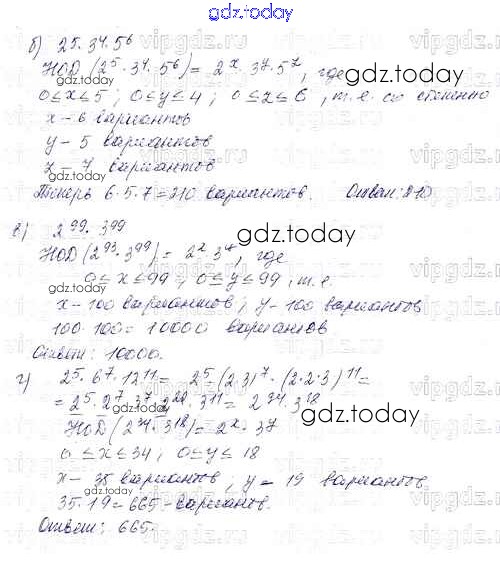 gdz.today
б) 2⁵·3⁴·5⁶
НОД (2⁵·3⁴·5⁶) = 2ˣ·3ʸ·5ᶻ, где
gdz.today
0≤x≤5; 0≤y≤4; 0≤z≤6, т.е. со степенью
x – 6 вариантов
y – 5 вариантов
z – 7 вариантов
gdz.today
Теперь 6·5·7=210 вариантов. Ответ: 210
в) 2⁹⁹·3⁹⁹
gdz.today
НОД (2⁹³·3⁹⁹) = 2ˣ·3ʸ, где
0≤x≤99; 0≤y≤99, т.е.
x – 100 вариантов; y – 100 вариантов
100·100=10000 вариантов
Ответ: 10000.
г) 2⁵·6⁷·12¹¹ = 2⁵·(2·3)⁷·(2·2·3)¹¹ =
= 2⁵·2⁷·3⁷·2²²·3¹¹ = 2³⁴·3¹⁸
gdz.today
НОД (2³⁴·3¹⁸) = 2ˣ·3ʸ
0≤x≤34; 0≤y≤18
x – 35 вариантов, y – 19 вариантов
35·19=665 – вариантов.
gdz.today
Ответ: 665.